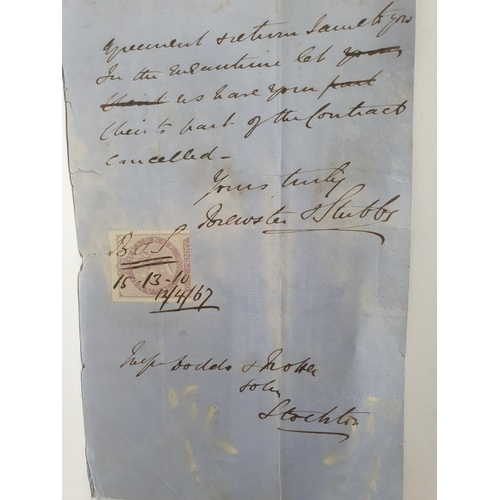 agreement & return same to you
In the meantime let your
client us have your part
Clients part of the Contract
cancelled –
Yours truly
Brewster & Stubbs
B & S
15-13-10
12/4/67
Messrs Dodds &
Solrs
Stockton